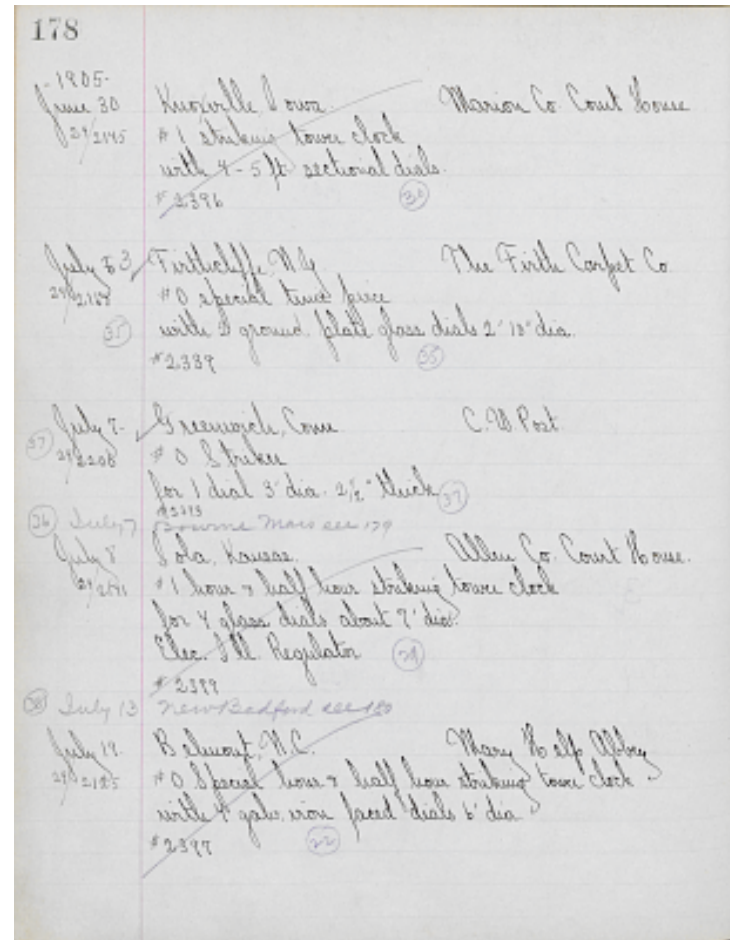 178
-1905-
June 30 Knoxville Iowa. Marion Co. Court House
29/2145 #1 striking tower clock
with 4-5 ft. sectional dials.
#2396 30
July 3 Firthcliffe, N.Y. The Firth Carpet Co.
#0 special time piece
35 with 2 ground plate glass dials 2' 10" dia.
#2389 35
July 7. Greenwich, Conn. C.W. Post.
37 29/2208 #0 Striker
for 1 dial 3' dia. 2 1/2" thick 37
36 July 7 Bourne Mass see 179
July 8 Iola, Kansas. Allen Co. Court House.
#1 hour & half hour striking tower clock
for 4 glass dials about 7' dia.
Elec. Ill. Regulator
#2399
38 July 13 New Bedford see 180
July 19. Belmont, N.C. Mary Help Abbey
#0 Special hour & half hour striking tower clock
with 4 galv. iron faced dials 6' dia
#2397 22